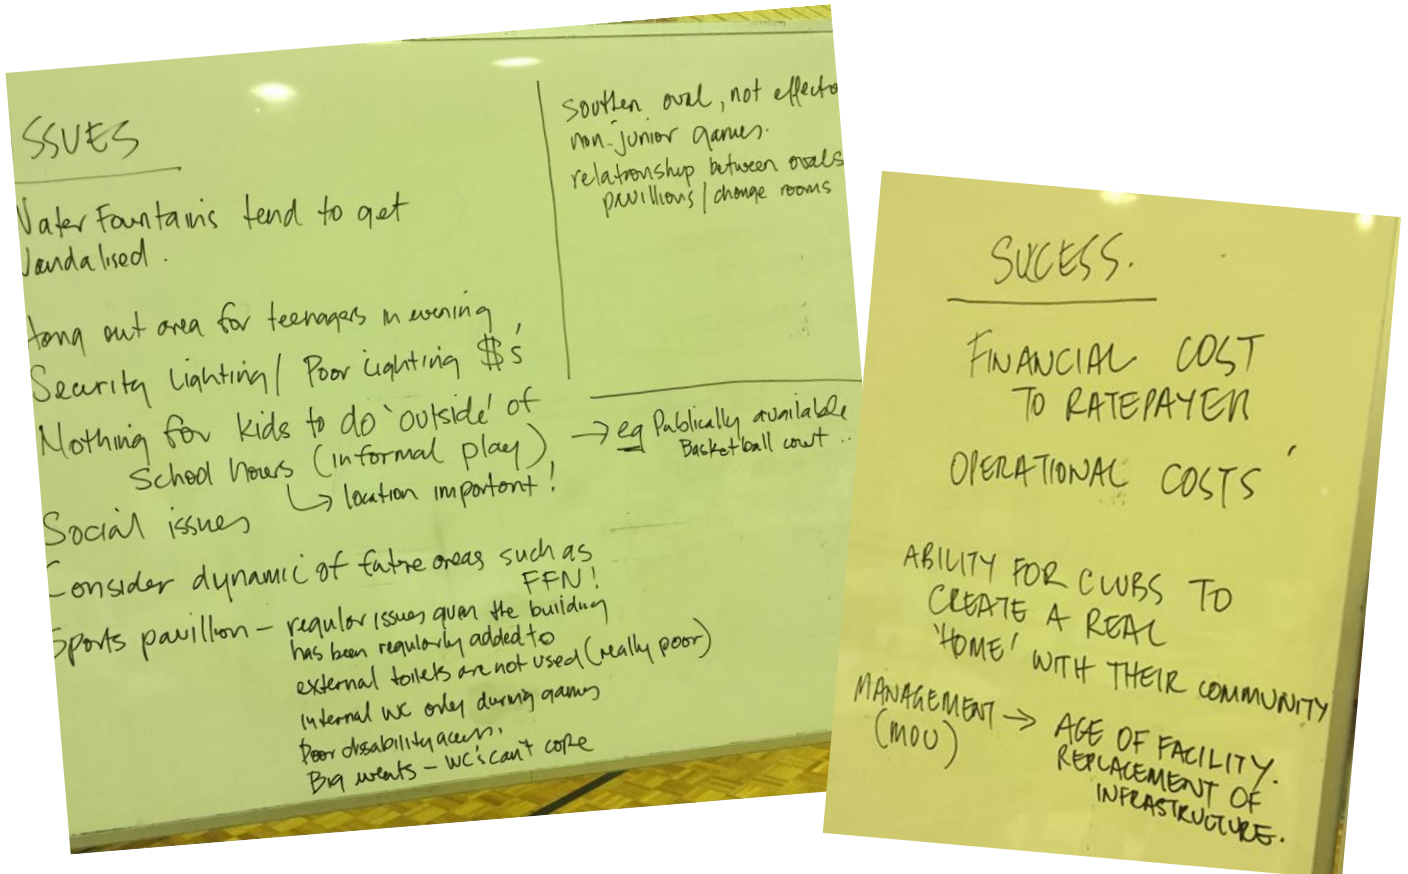 SSUES
Water Fountains tend to get
Vandalised.
Hang out area for teenagers in evening
Security Lighting / Poor Lighting $'s
Nothing for kids to do 'outside' of
School hours (informal play)
↳ location important!
Social issues
Consider dynamic of future areas such as
FFN!
Sports pavillion – regular issues given the building
has been regularly added to
external toilets are not used (really poor)
internal WC only during games
Poor disability access.
Big events – WC's can't cope
Southern oval, not effecto
non-junior games.
relationship between ovals
pavillions / change rooms
→ eg Publically available
Basketball court ..
SUCESS.
FINANCIAL COST
TO RATEPAYER
OPERATIONAL COSTS
ABILITY FOR CLUBS TO
CREATE A REAL
'HOME' WITH THEIR COMMUNITY
MANAGEMENT → AGE OF FACILITY.
(MOU) REPLACEMENT OF
INFRASTRUCTURE.